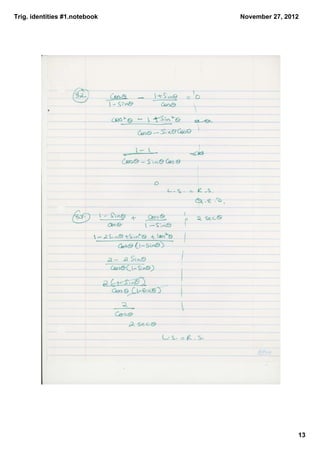 Trig. identities #1.notebook
November 27, 2012
52. Cosθ/(1-Sinθ) - (1+Sinθ)/Cosθ = 0
(Cos²θ - 1 + Sin²θ)/(Cosθ - SinθCosθ)
(1-1)/(Cosθ - SinθCosθ)
0
L.S. = R.S.
Q.E.D.
(1-Sinθ)/Cosθ + Cosθ/(1-Sinθ) = 2 secθ
(1-2Sinθ+Sin²θ+Cos²θ)/(Cosθ(1-Sinθ))
(2-2Sinθ)/(Cosθ(1-Sinθ))
2(1-Sinθ)/(Cosθ(1-Sinθ))
2/Cosθ
2 secθ
L.S. = R.S.
13